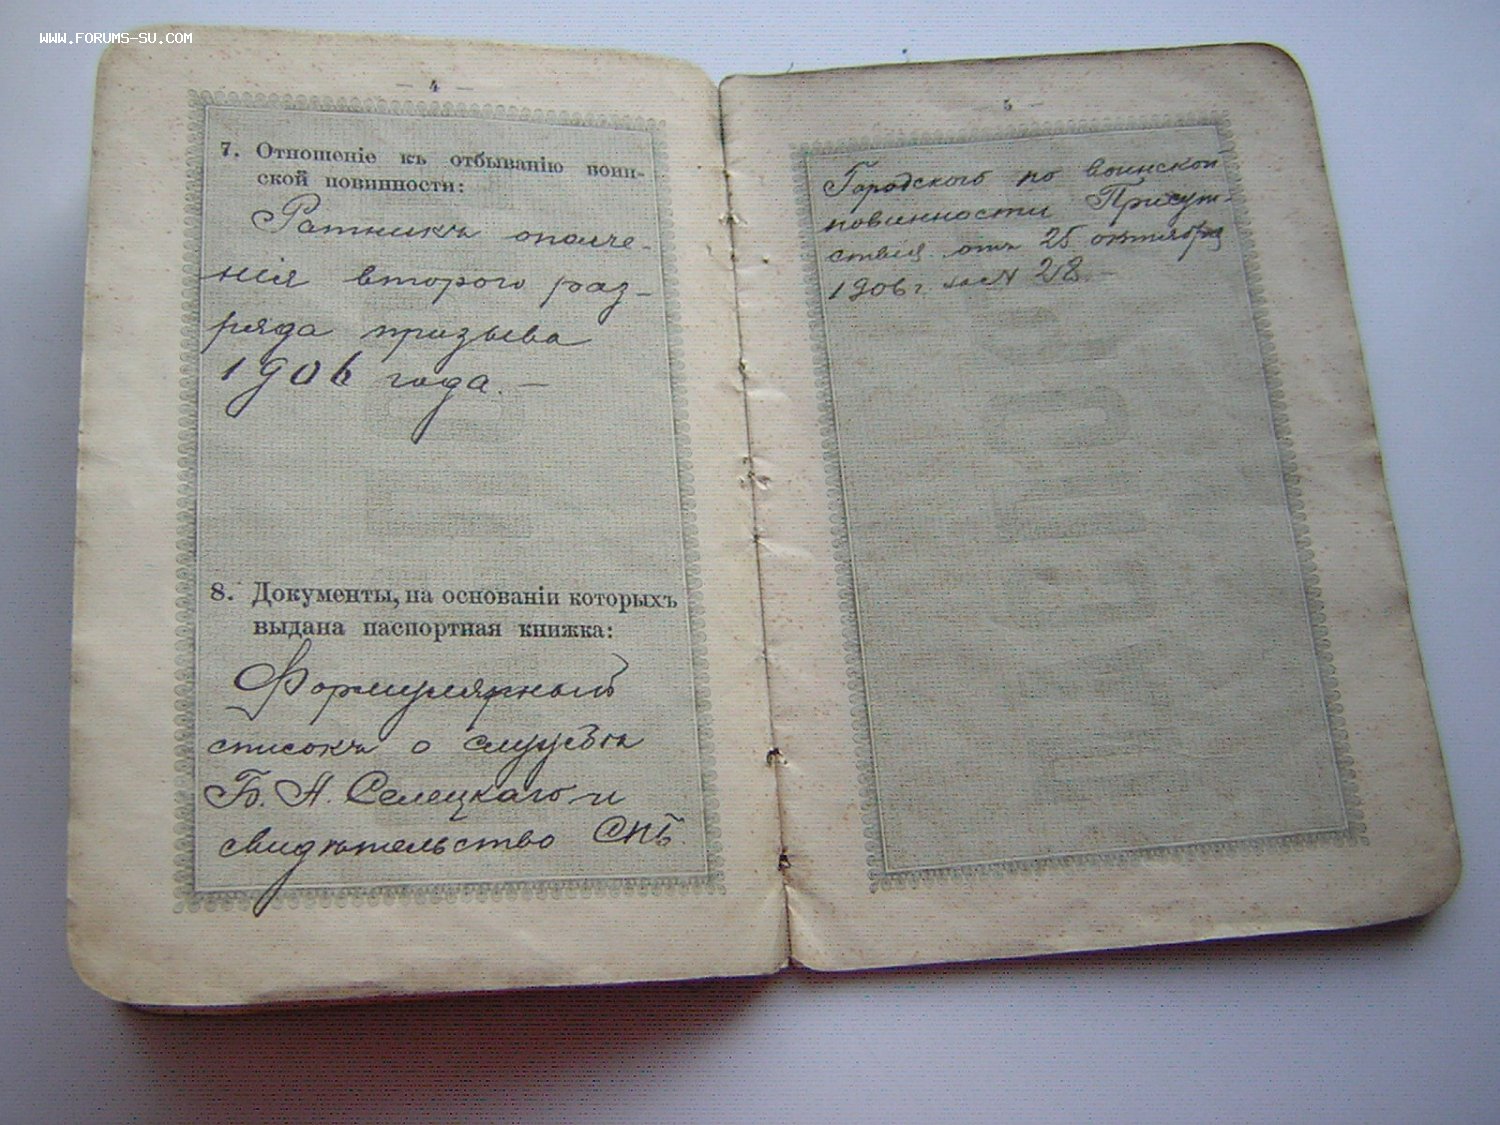 WWW.FORUMS-SU.COM
— 4 —
7. Отношеніе къ отбыванію воин-
ской повинности:
Ратникъ ополче-
нія второго раз-
ряда призыва
1906 года. —
8. Документы, на основаніи которыхъ
выдана паспортная книжка:
Формулярный
списокъ о службѣ
Б. А. Селецкаго и
свидѣтельство СПБ.
— 5 —
Городского по воинской
повинности Присут-
ствія отъ 25 октября
1906 г. за № 28. —